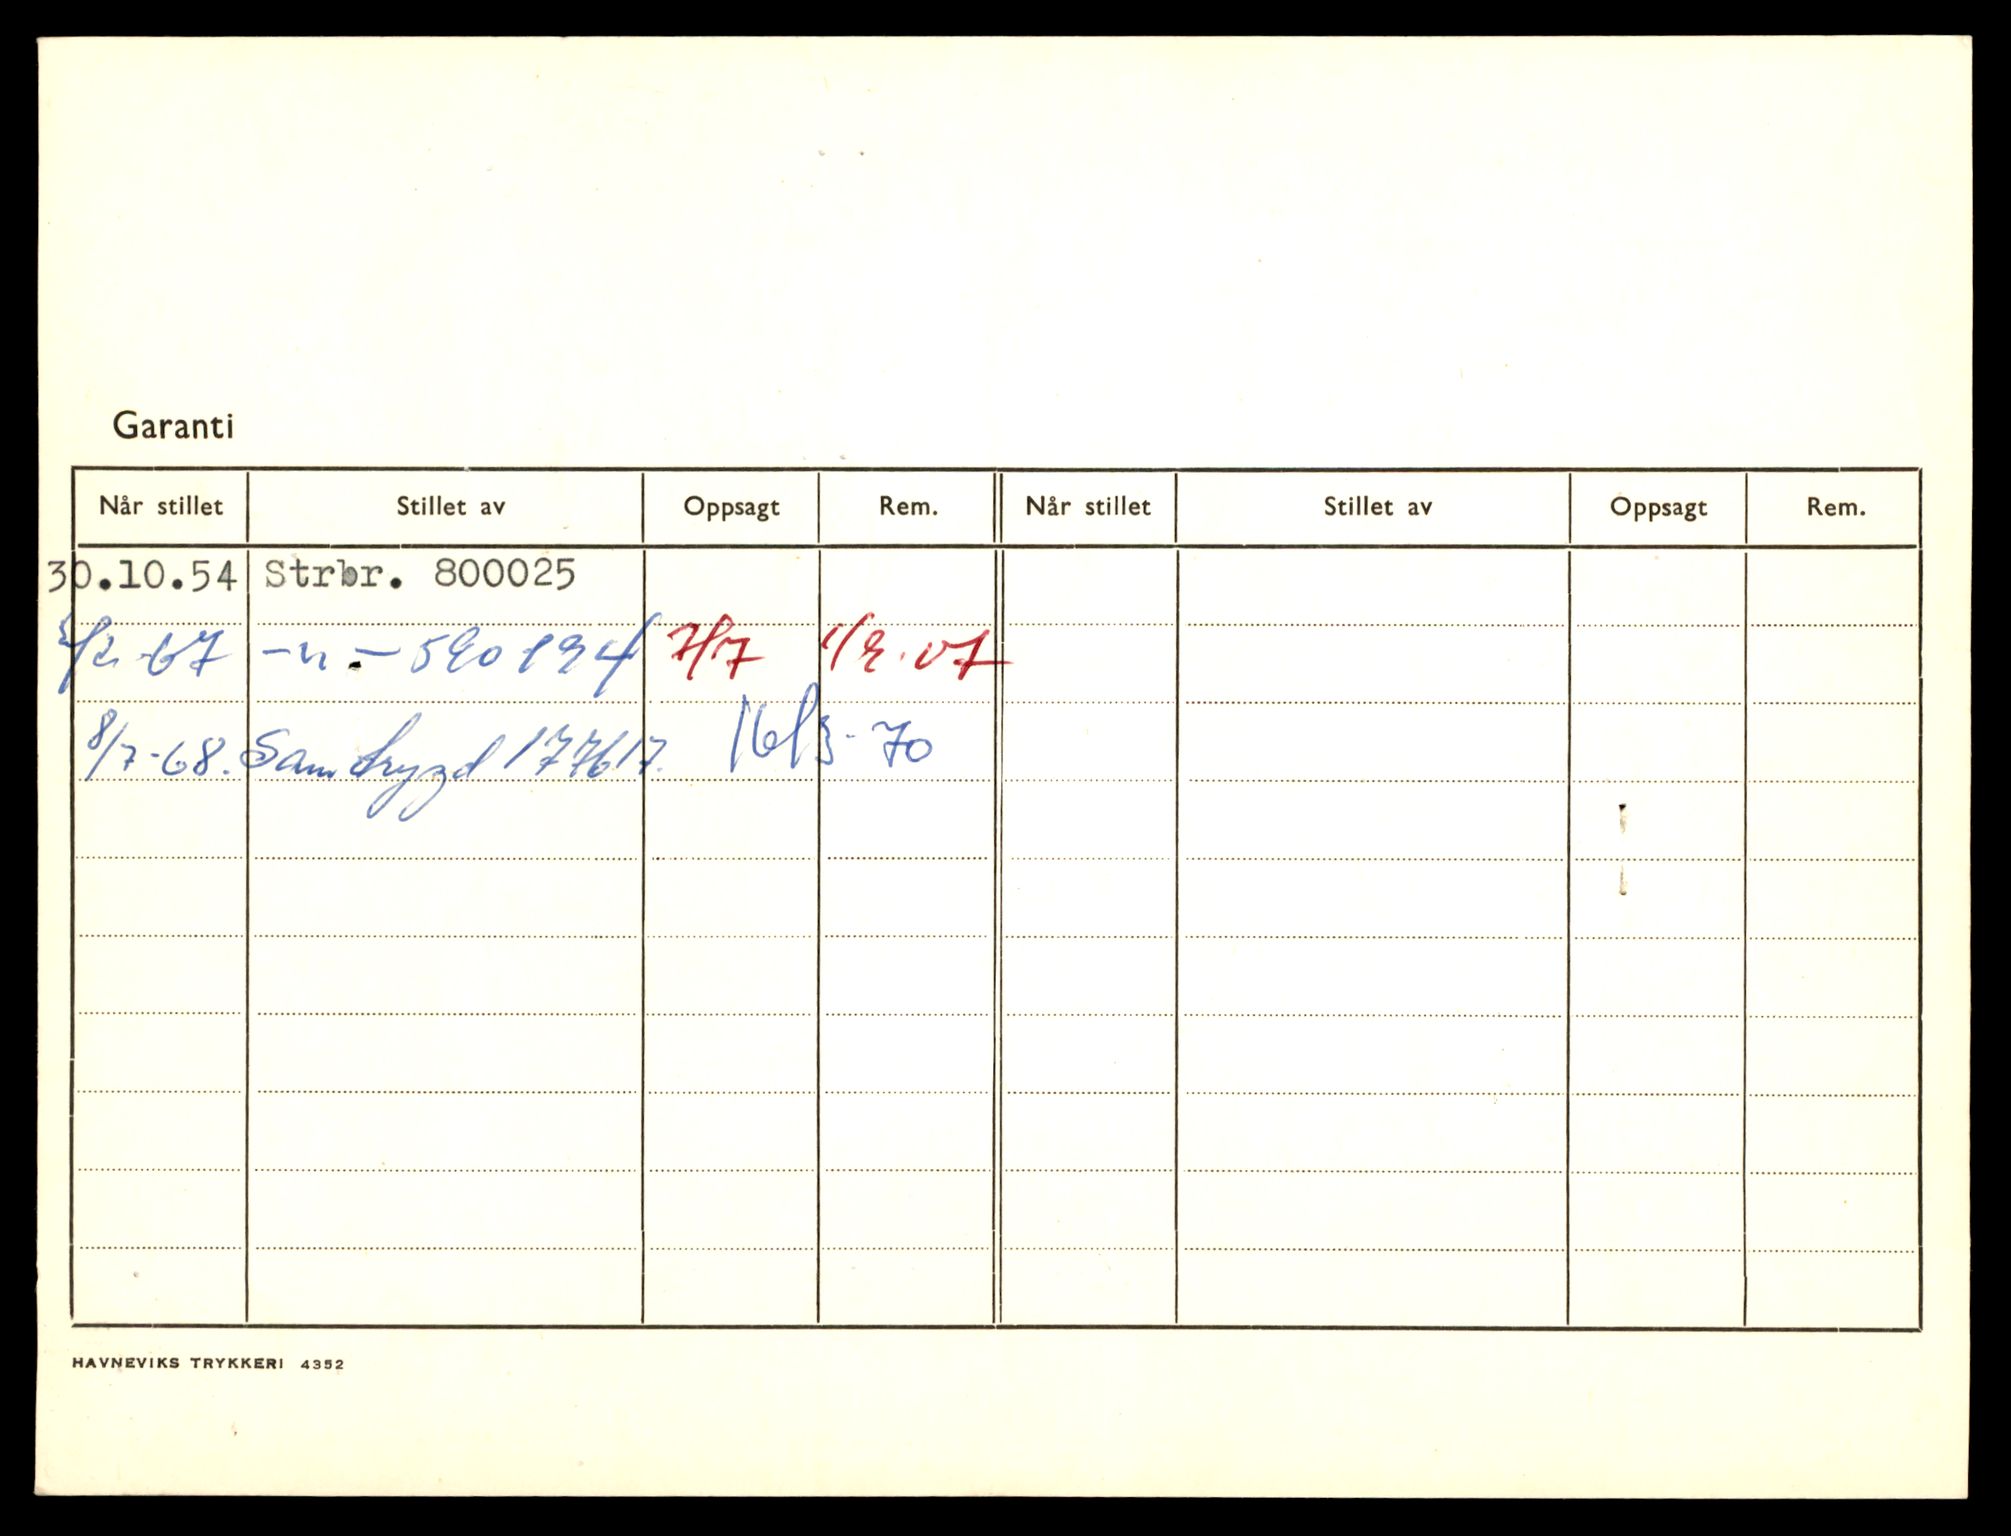 Garanti
Når stillet Stillet av Oppsagt Rem. Når stillet Stillet av Oppsagt Rem.
30.10.54 Strbr. 800025
/2-67 -"- 590194 7/7 1/9.67
8/7-68. Samtrygd 177617. 16/3-70
HAVNEVIKS TRYKKERI 4352